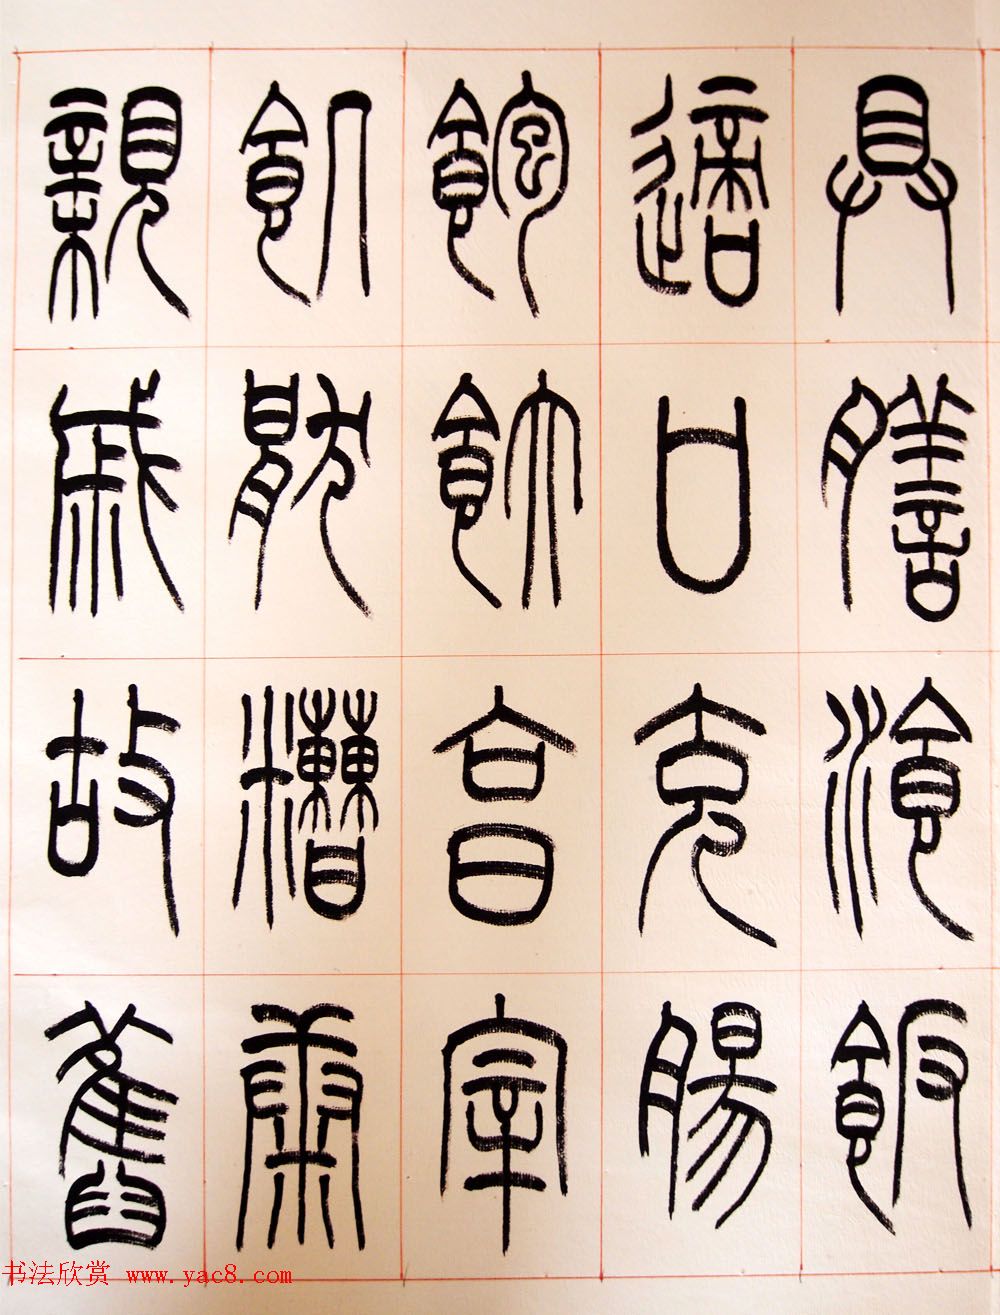 具膳湌飯
適口充腸
飽飫享宰
飢猒糟康
親戚故舊
书法欣赏 www.yac8.com